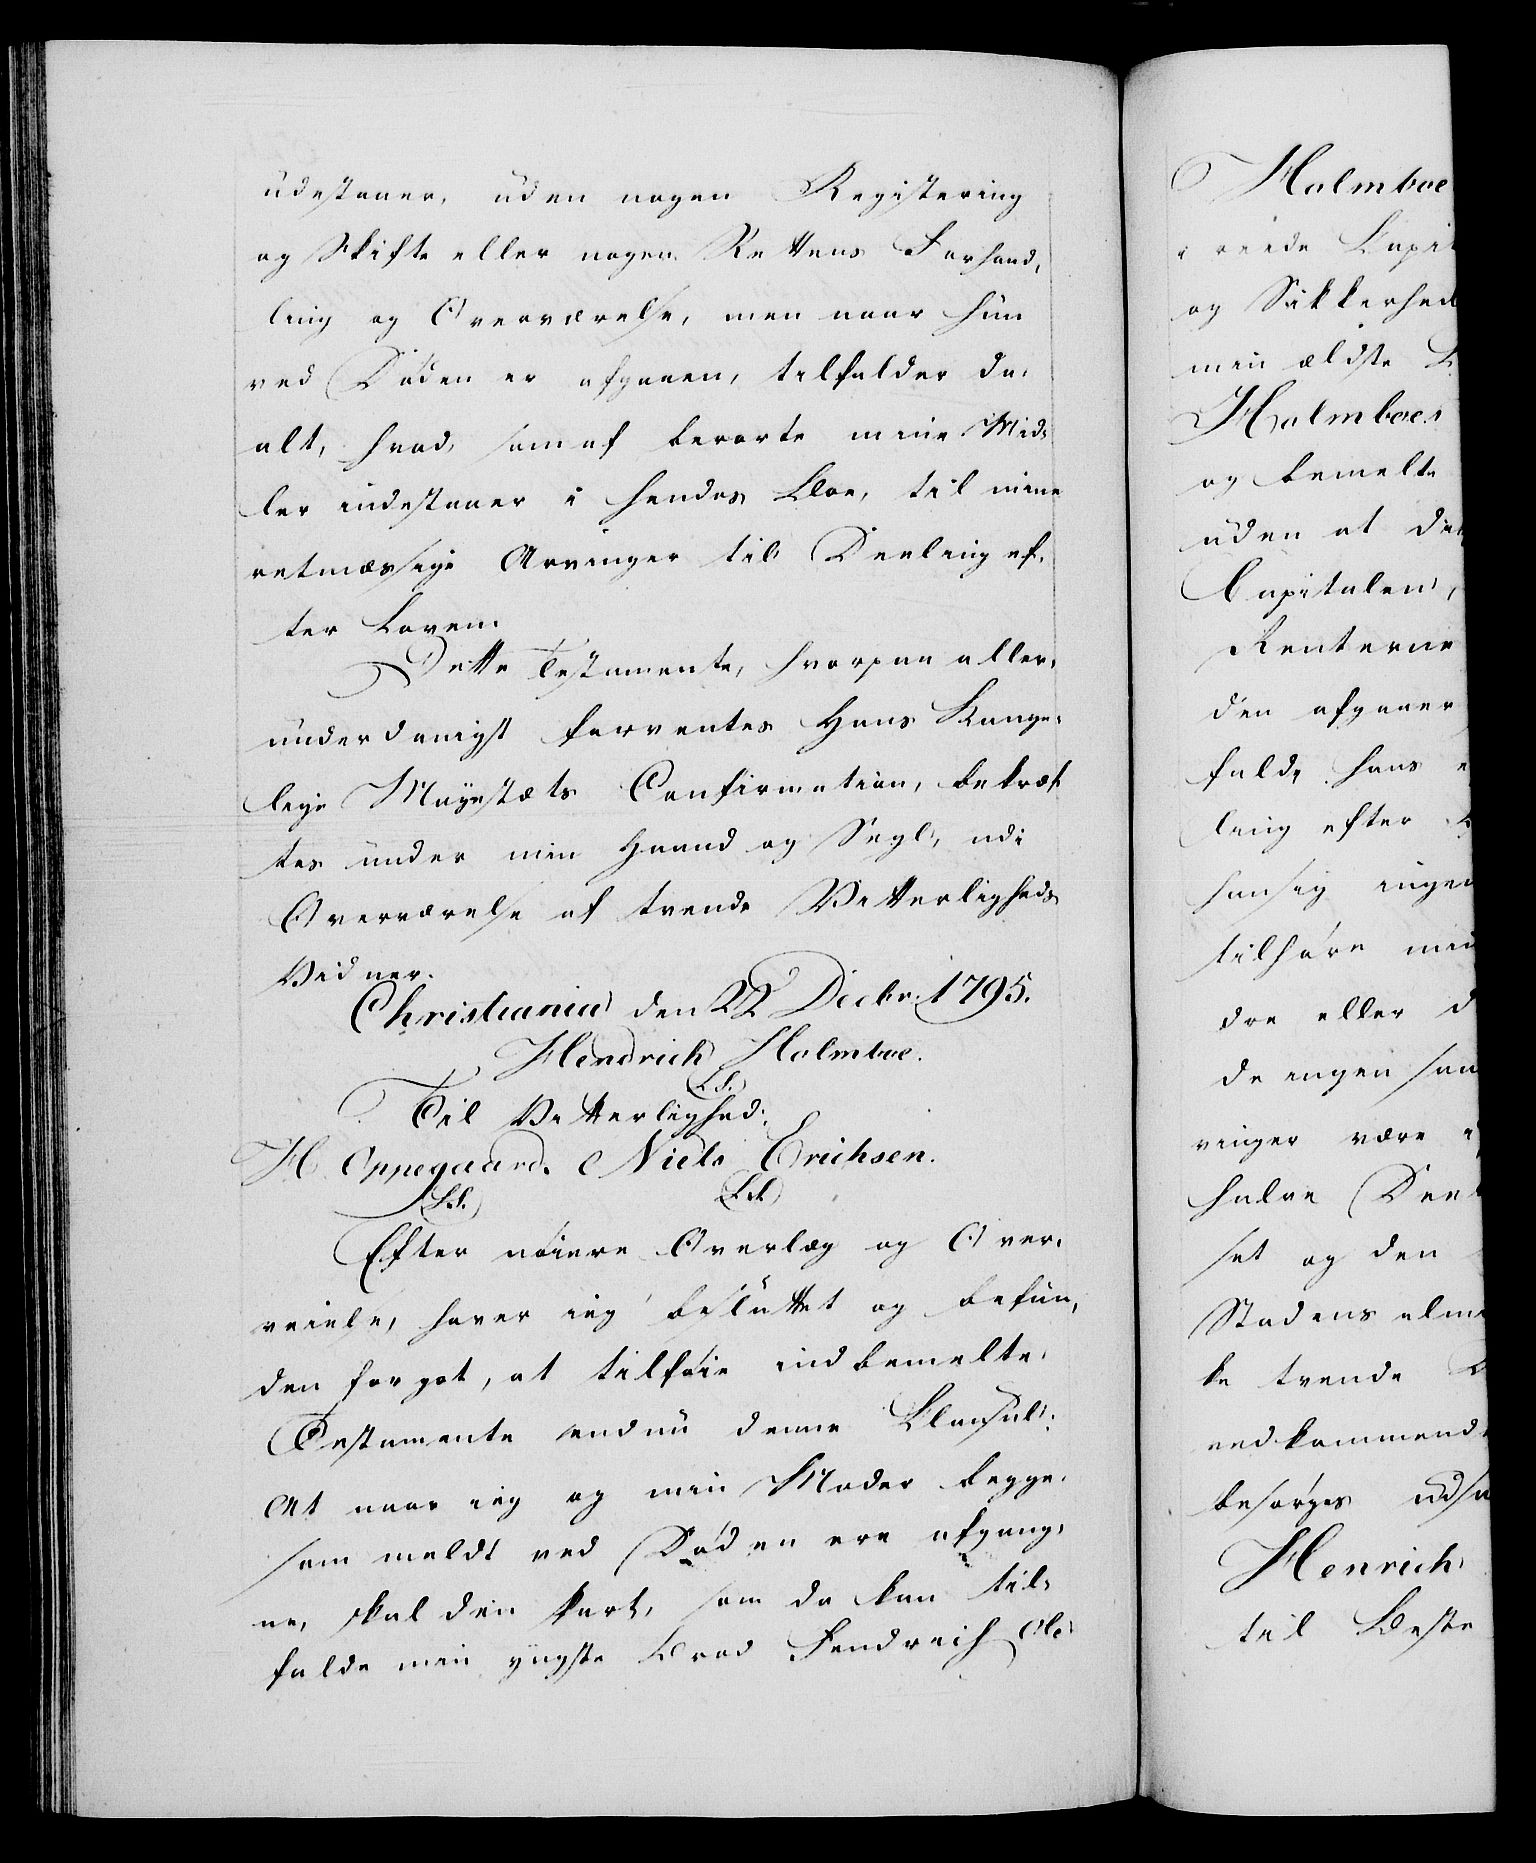 udestaaer, uden nogen Registering
og Skifte eller nogen Rettens Forhand,
ling og Overværelse, men naar hun
ved Døden er afgaaen, tilfalder da,
alt, hvad, som af berørte mine Mid,
ler indestaaer i hendes Boe, til mine
retmæssige Arvinger til Deeling ef,
ter Loven.
Dette Testamente, hvorpaa aller,
underdanigst forventes Hans Konge,
lige Mayestæts Confirmation, bekræf
tes under min Haand og Segl, udi
Overværelse af tvende Vitterligheds
Vidner.
Christiania den 22 Decbr. 1795.
Hendrich Holmboe.
(L.S.)
Til Vitterlighed:
H. Oppegaard. Niels Erichsen.
(L.S.) (L.S.)
Efter nøiere Overlæg og Over,
veielse, haver ieg besluttet og befun,
den for got, at tilføie indbemelte
Testamente endnu denne Clausul:
At naar ieg og min Moder begge,
som meldt ved Døden ere afgang,
ne, skal den Part, som da kan til,
falde min yngste Broder Fendreich Ole
Holmboe
reede Capit
og Sikkerhed
min ældste B
Holmboes
og bemelte
uden at den
Capitalen,
Renterne
den afgaaer
falde hans
ling efter L
han sig ingen
tilhøre min
dre eller d
de ingen saa
vinger være i
halve Dee
set og den
Stadens alm
ke tvende
vedkommende
besørges uds
Henrich
til Beste